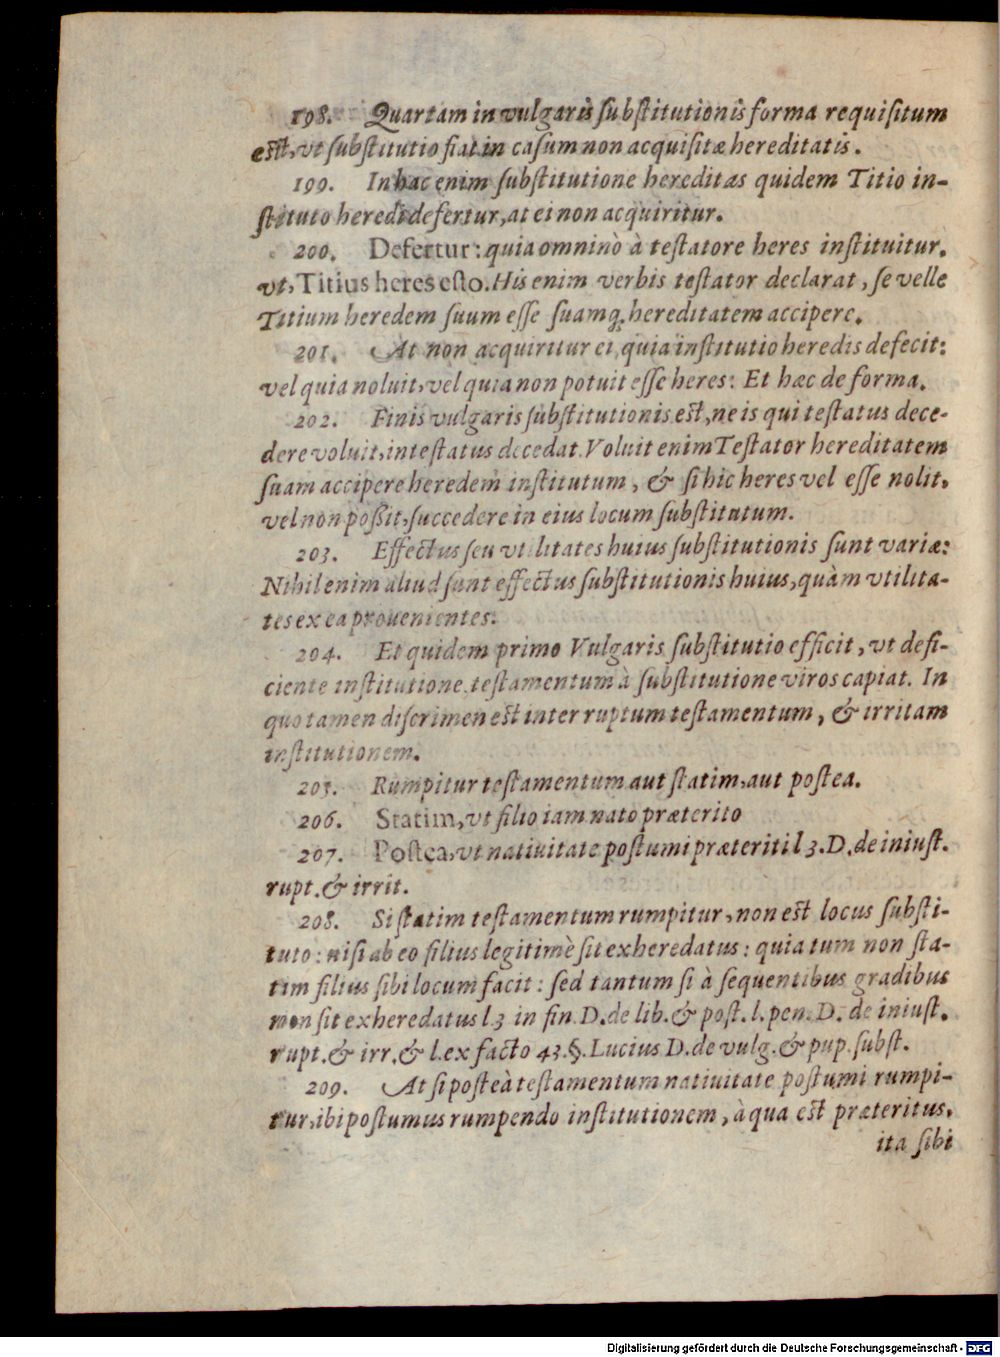 198. Quartam in vulgaris substitutionis forma requisitum
est, vt substitutio fiat in casum non acquisitæ hereditatis.
199. In hac enim substitutione hereditas quidem Titio in-
stituto heredi defertur, at ei non acquiritur.
200. Defertur: quia omninò à testatore heres instituitur.
vt, Titius heres esto. His enim verbis testator declarat, se velle
Titium heredem suum esse suamq; hereditatem accipere.
201. At non acquiritur ei, quia institutio heredis defecit:
vel quia noluit, vel quia non potuit esse heres: Et hæc de forma.
202. Finis vulgaris substitutionis est, ne is qui testatus dece-
dere voluit, intestatus decedat. Voluit enim Testator hereditatem
suam accipere heredem institutum, & si hic heres vel esse nolit,
vel non possit, succedere in eius locum substitutum.
203. Effectus seu vtilitates huius substitutionis sunt variæ:
Nihil enim aliud sunt effectus substitutionis huius, quàm vtilita-
tes ex ea prouenientes.
204. Et quidem primo Vulgaris substitutio efficit, vt defi-
ciente institutione testamentum à substitutione viros capiat. In
quo tamen discrimen est inter ruptum testamentum, & irritam
institutionem.
205. Rumpitur testamentum aut statim, aut postea.
206. Statim, vt filio iam nato præterito
207. Postea, vt natiuitate postumi præteriti l 3. D. de iniust.
rupt. & irrit.
208. Si statim testamentum rumpitur, non est locus substi-
tuto: nisi ab eo filius legitimè sit exheredatus: quia tum non sta-
tim filius sibi locum facit: sed tantum si à sequentibus gradibus
non sit exheredatus l 3 in fin. D. de lib. & post. l. pen. D. de iniust.
rupt. & irr. & l. ex facto 43. §. Lucius D. de vulg. & pup. subst.
209. At si posteà testamentum natiuitate postumi rumpi-
tur, ibi postumus rumpendo institutionem, à qua est præteritus,
ita sibi
Digitalisierung gefördert durch die Deutsche Forschungsgemeinschaft - DFG